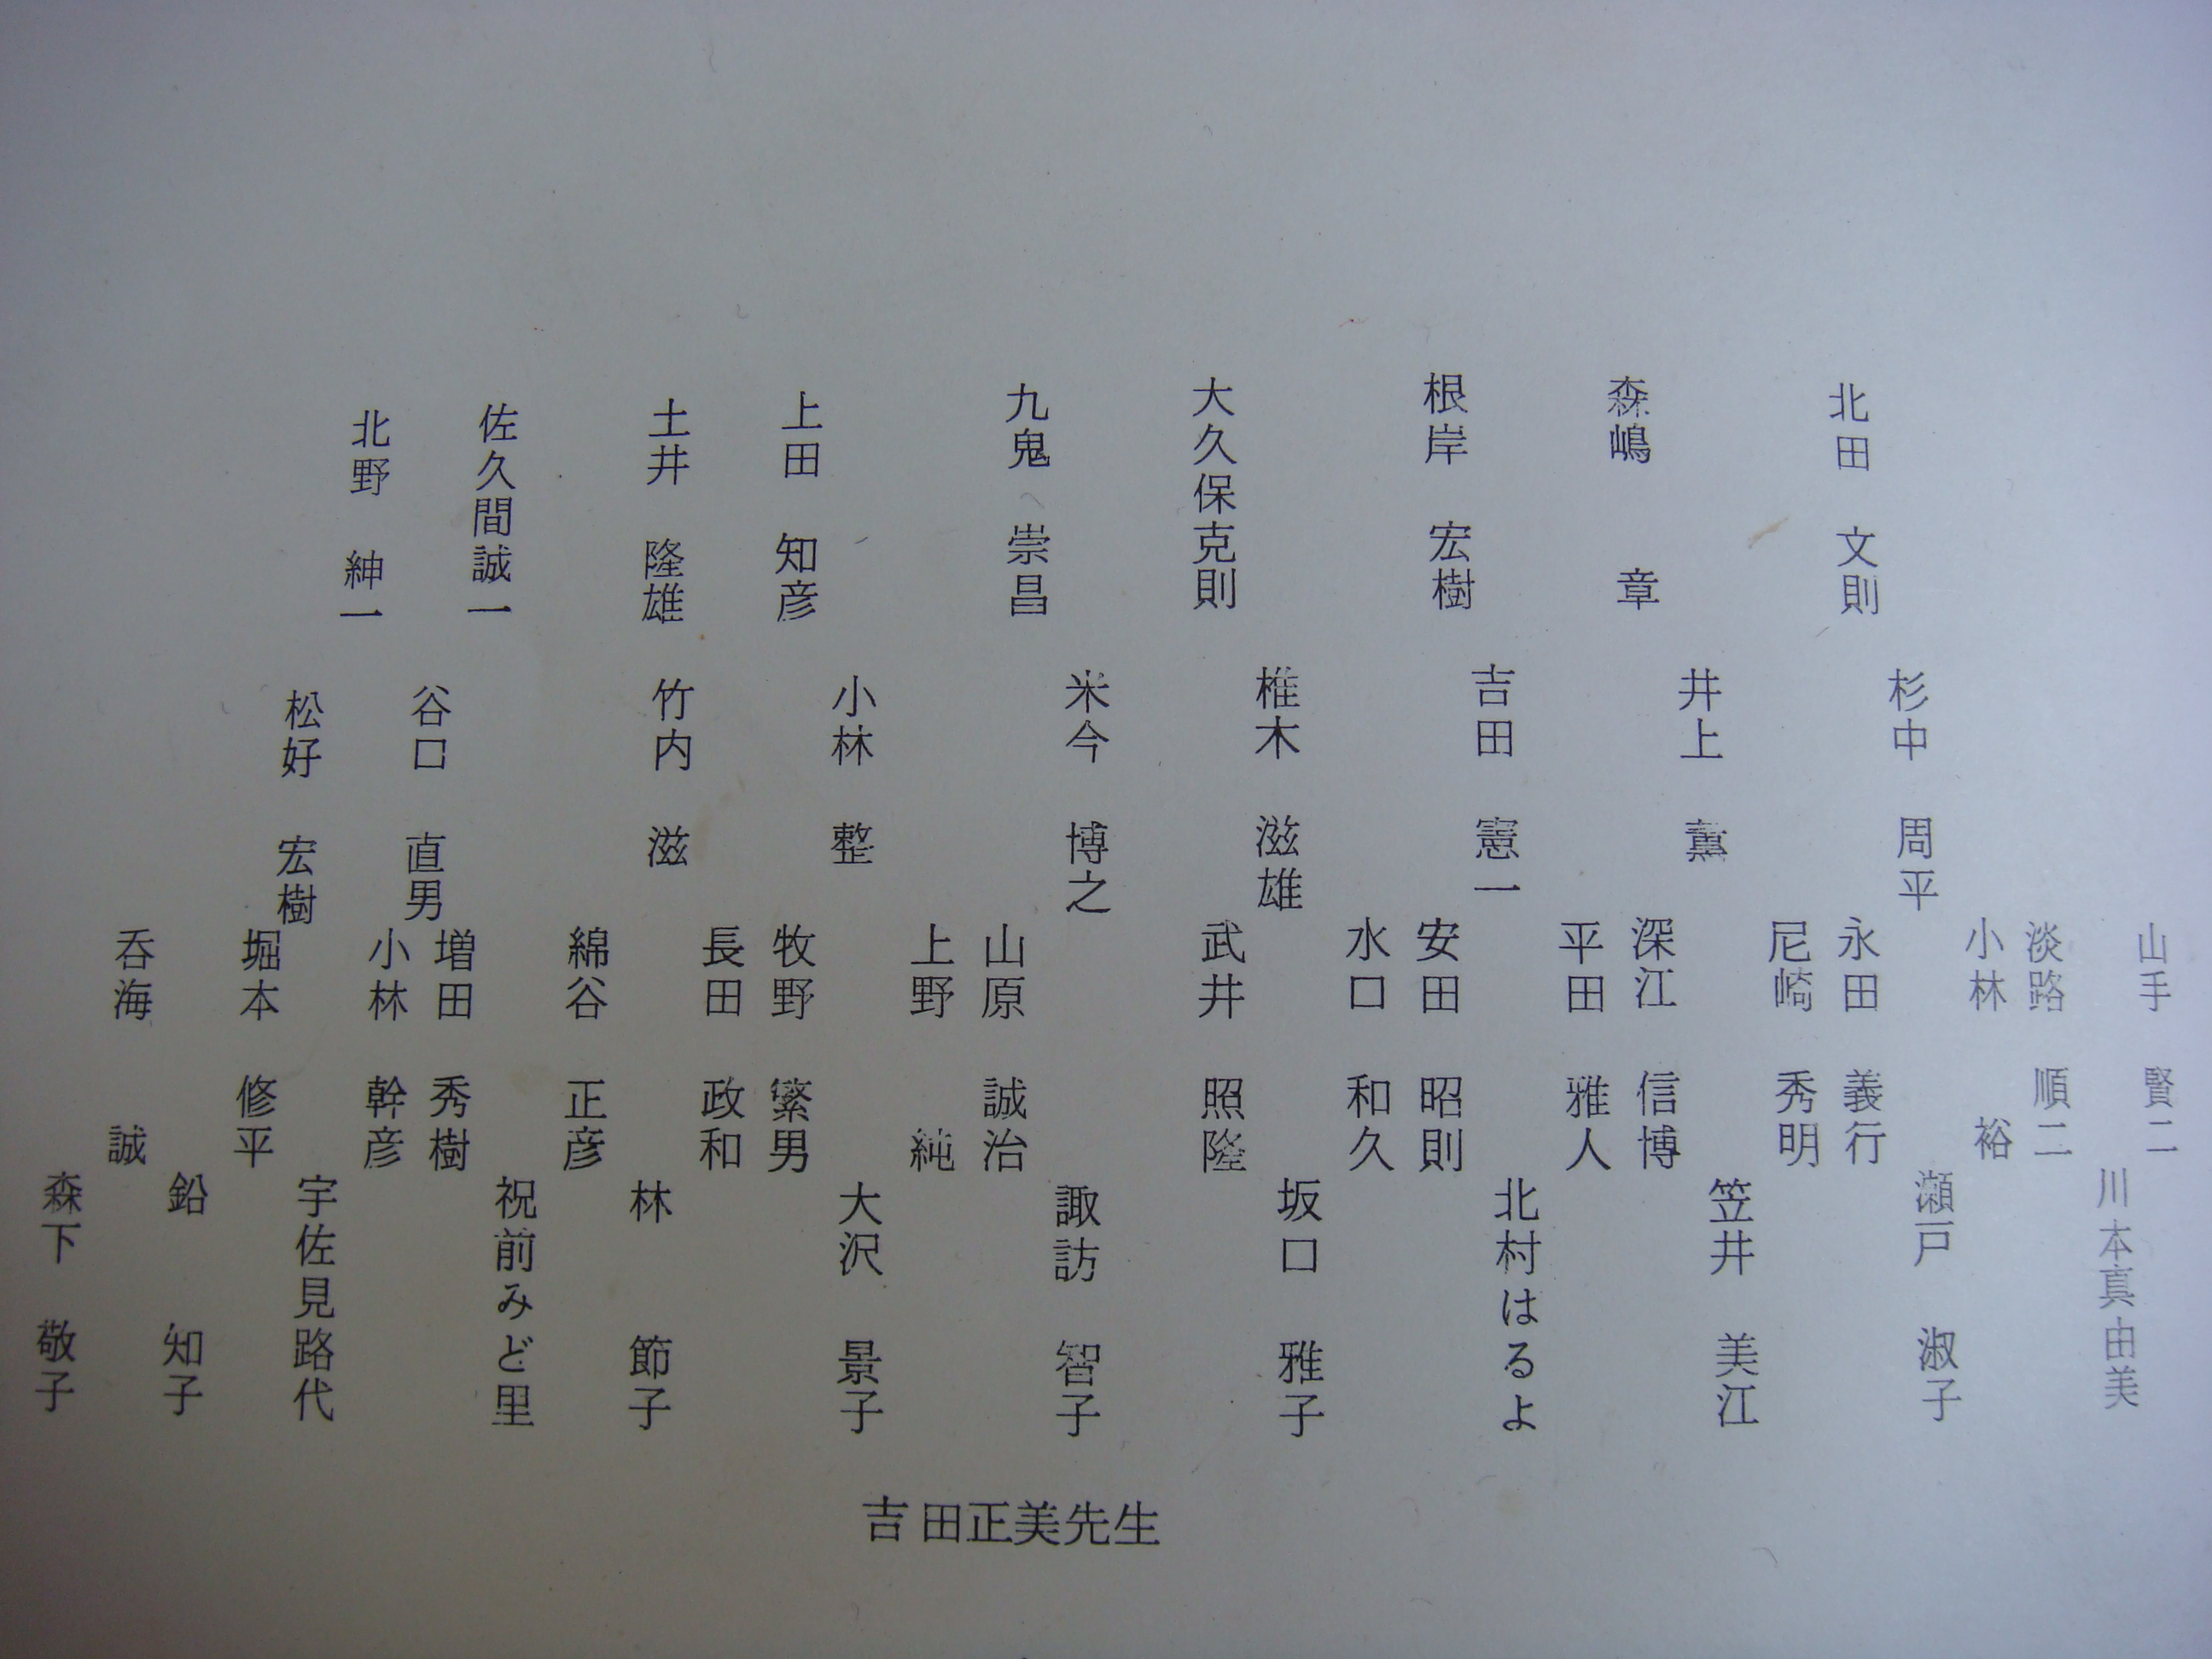 北田 文則
森嶋 章
根岸 宏樹
大久保克則
九鬼 崇昌
上田 知彦
土井 隆雄
佐久間誠一
北野 紳一
杉中 周平
井上 薫
吉田 憲一
椎木 滋雄
米今 博之
小林 整
竹内 滋
谷口 直男
松好 宏樹
山手 賢二
淡路 順二
小林 裕
永田 義行
尼崎 秀明
深江 信博
平田 雅人
安田 昭則
水口 和久
武井 照隆
山原 誠治
上野 純
牧野 繁男
長田 政和
綿谷 正彦
増田 秀樹
小林 幹彦
堀本 修平
呑海 誠
川本真由美
瀬戸 淑子
笠井 美江
北村はるよ
坂口 雅子
諏訪 智子
大沢 景子
林 節子
祝前みど里
宇佐見路代
鉛 知子
森下 敬子
吉田正美先生